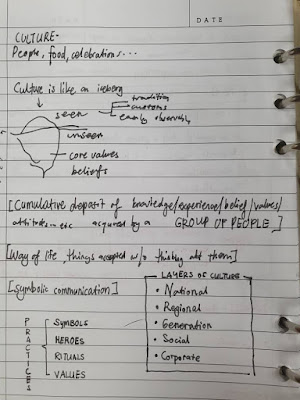 DATE
CULTURE-
People, food, celebrations...
Culture is like an iceberg
seen
tradition
customs
easily observable
unseen
core values
beliefs
[Cumulative deposit of knowledge/experience/belief/values/
attitudes... etc acquired by a GROUP OF PEOPLE]
[Way of life, things accepted w/o thinking abt them]
[Symbolic communication]
LAYERS OF CULTURE
• National
• Regional
• Generation
• Social
• Corporate
PRACTICES
SYMBOLS
HEROES
RITUALS
VALUES